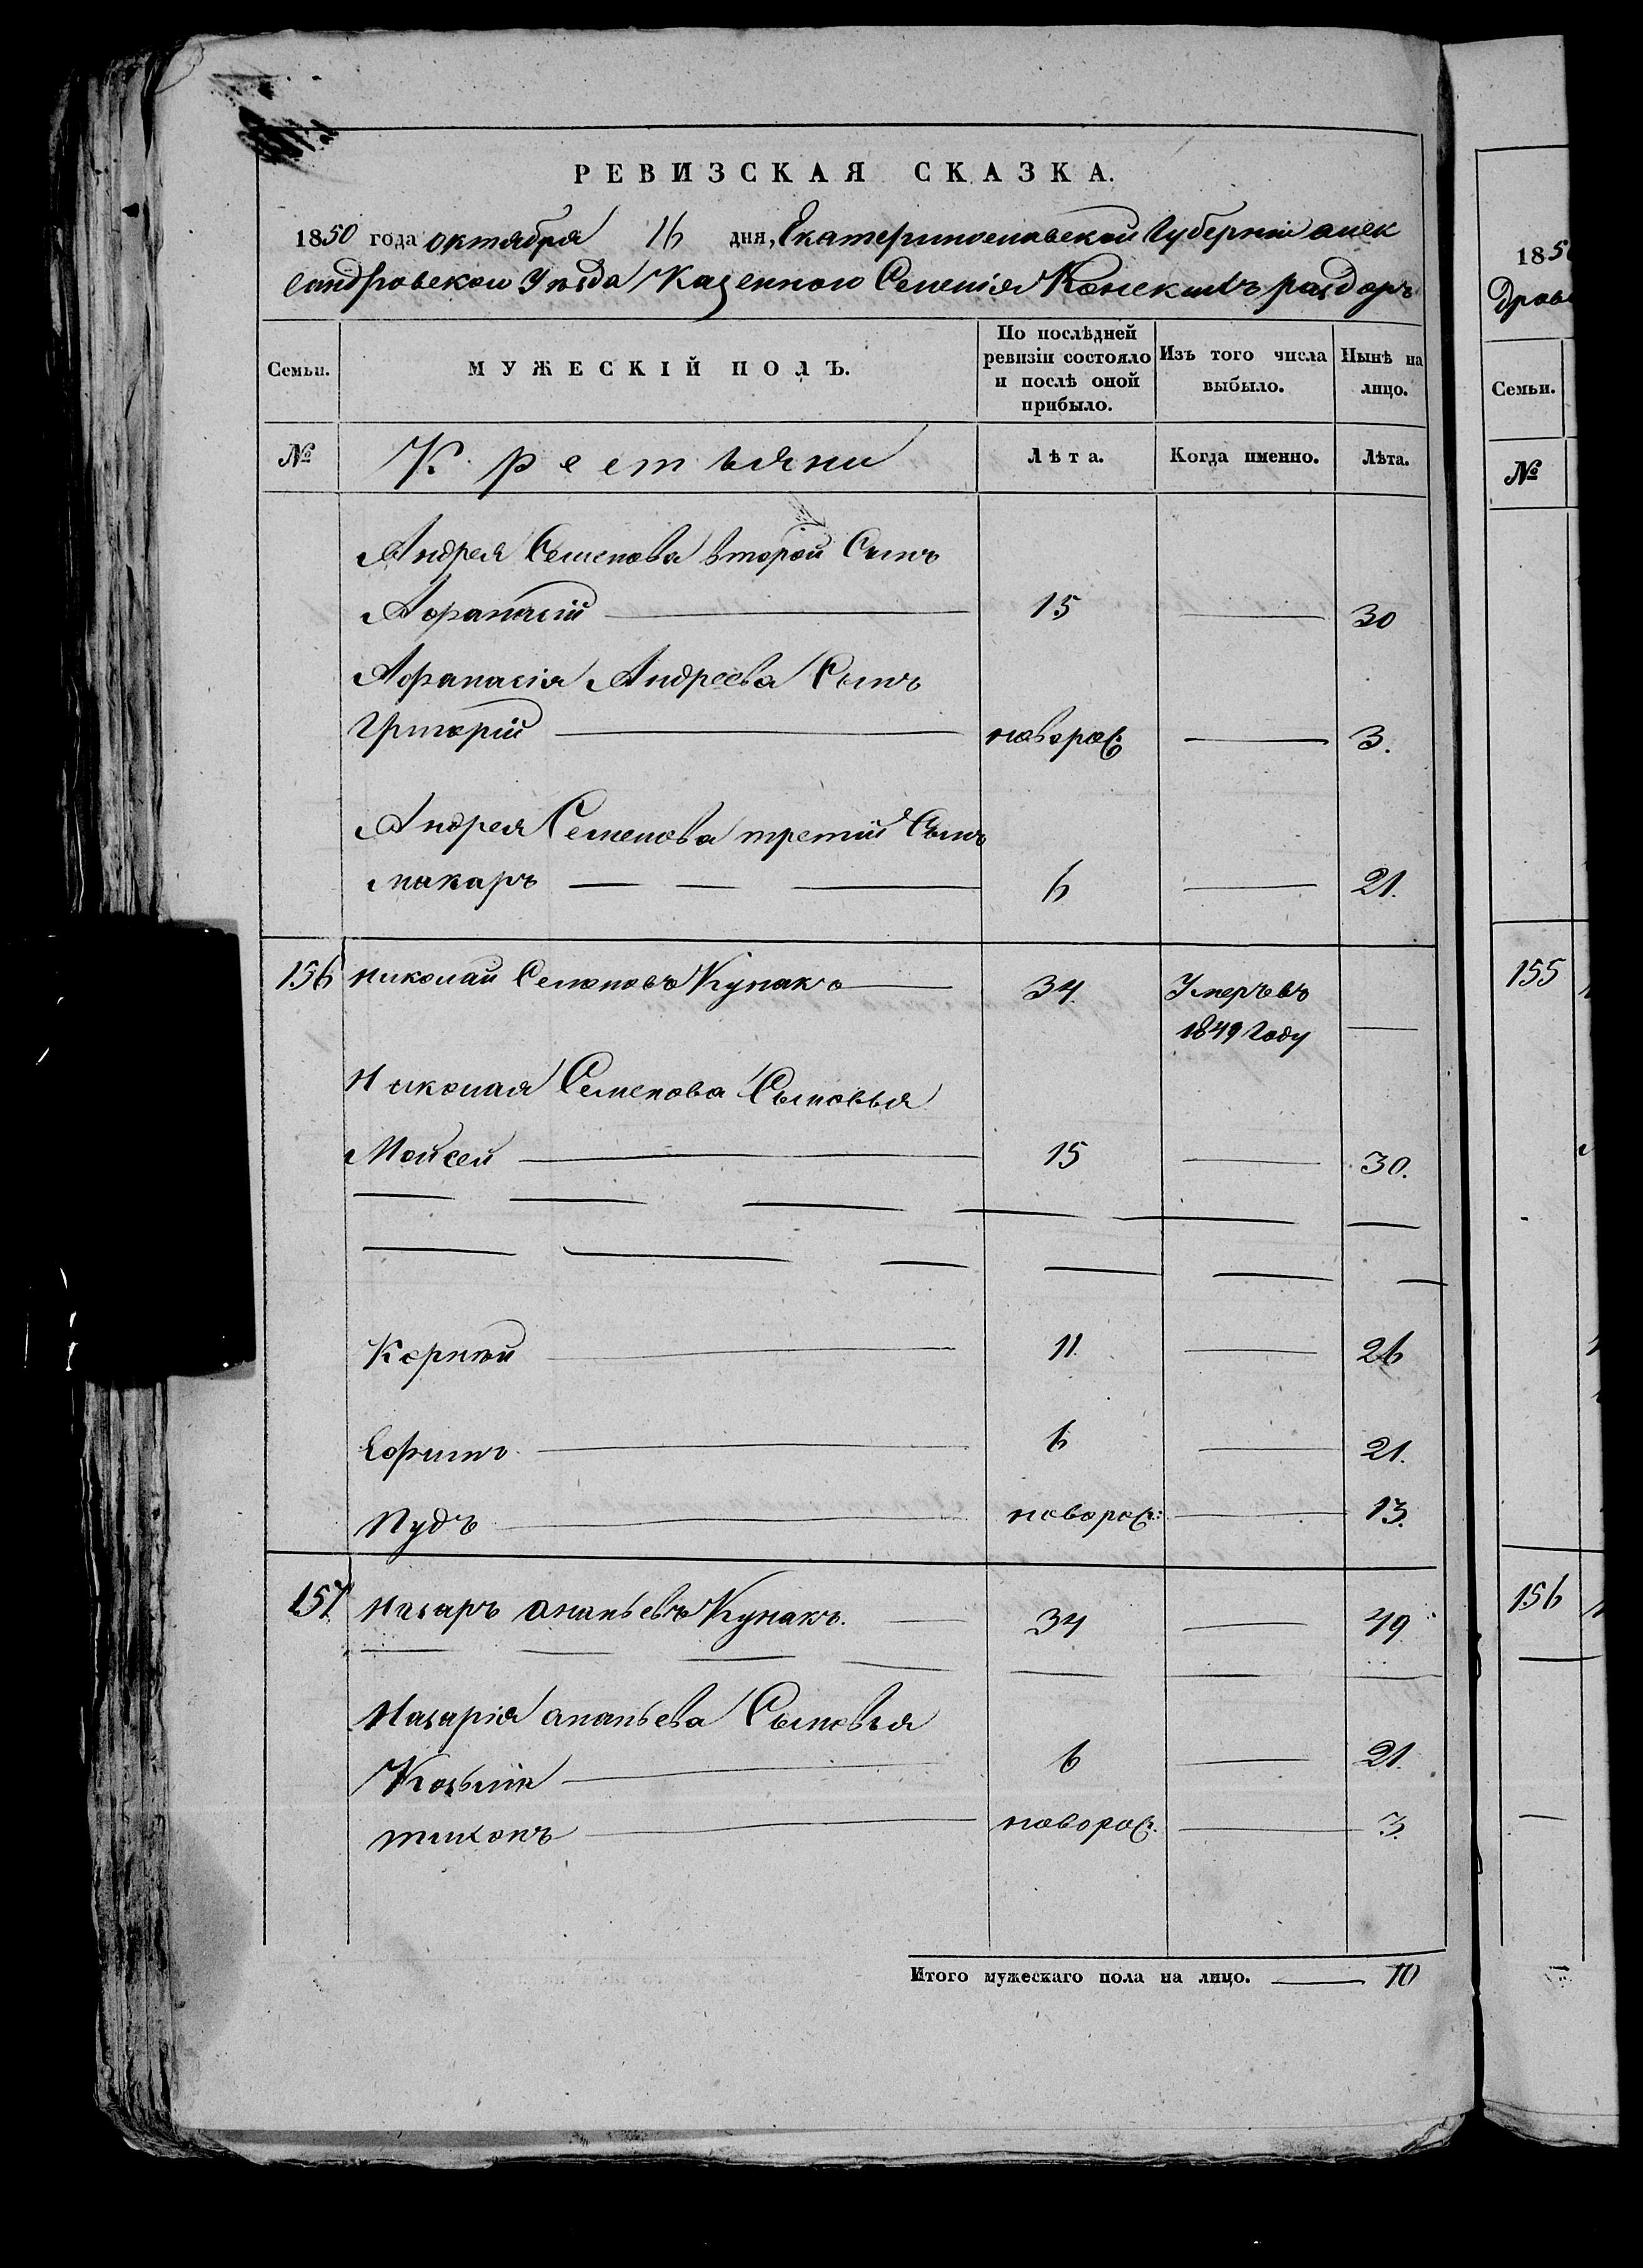 РЕВИЗСКАЯ СКАЗКА.
1850 года октября 16 дня, Екатеринославской Губерніи алек
сандровскою Уѣзда Казенного Селенія Конскихъ раздоръ
Семьи. МУЖЕСКІЙ ПОЛЪ. По послѣдней ревизіи состояло и послѣ оной прибыло. Изъ того числа выбыло. Нынѣ на лицо.
№ Крестьяни Лѣта. Когда именно. Лѣта.
Андрея Семенова второй Сынъ
Афанасій 15 30
Афанасія Андреева Сынъ
Григорій новорож: 3.
Андрея Семенова третій Сынъ
макаръ 6 21.
156 николай Семоновъ Кунакъ 34 Умеръ въ
1849 году
Николая Семенова Сыновья
Мойсей 15 30.
Корнѣй 11. 26
Ефимъ 6 21.
Пудъ новорож: 13.
157. Назаръ ананьевъ Кунакъ. 34 49
Назарія ананьева Сыновья
Козьма 6 21.
тихонъ новорож. 3.
Итого мужескаго пола на лицо. 10
185
Дров
Семьи.
№
155
156